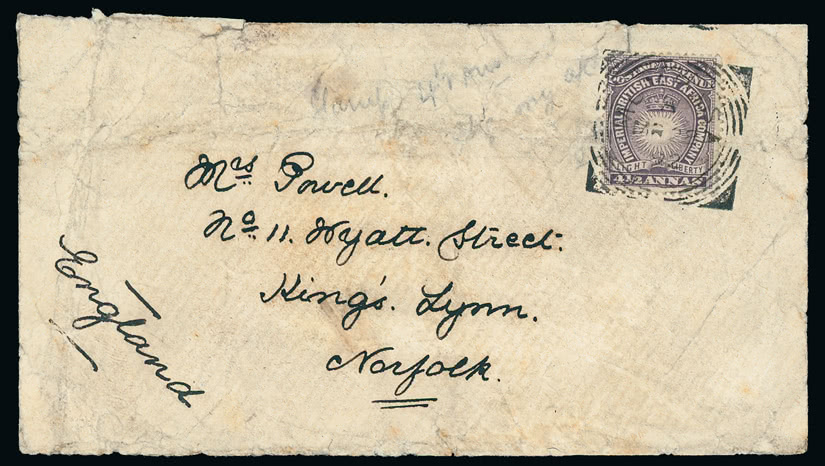 POSTAGE & REVENUE
IMPERIAL BRITISH EAST AFRICA COMPANY
LIGHT AND LIBERTY
4½ ANNAS
Mrs Powell.
No. 11. Wyatt. Street.
King's. Lynn.
Norfolk.
England